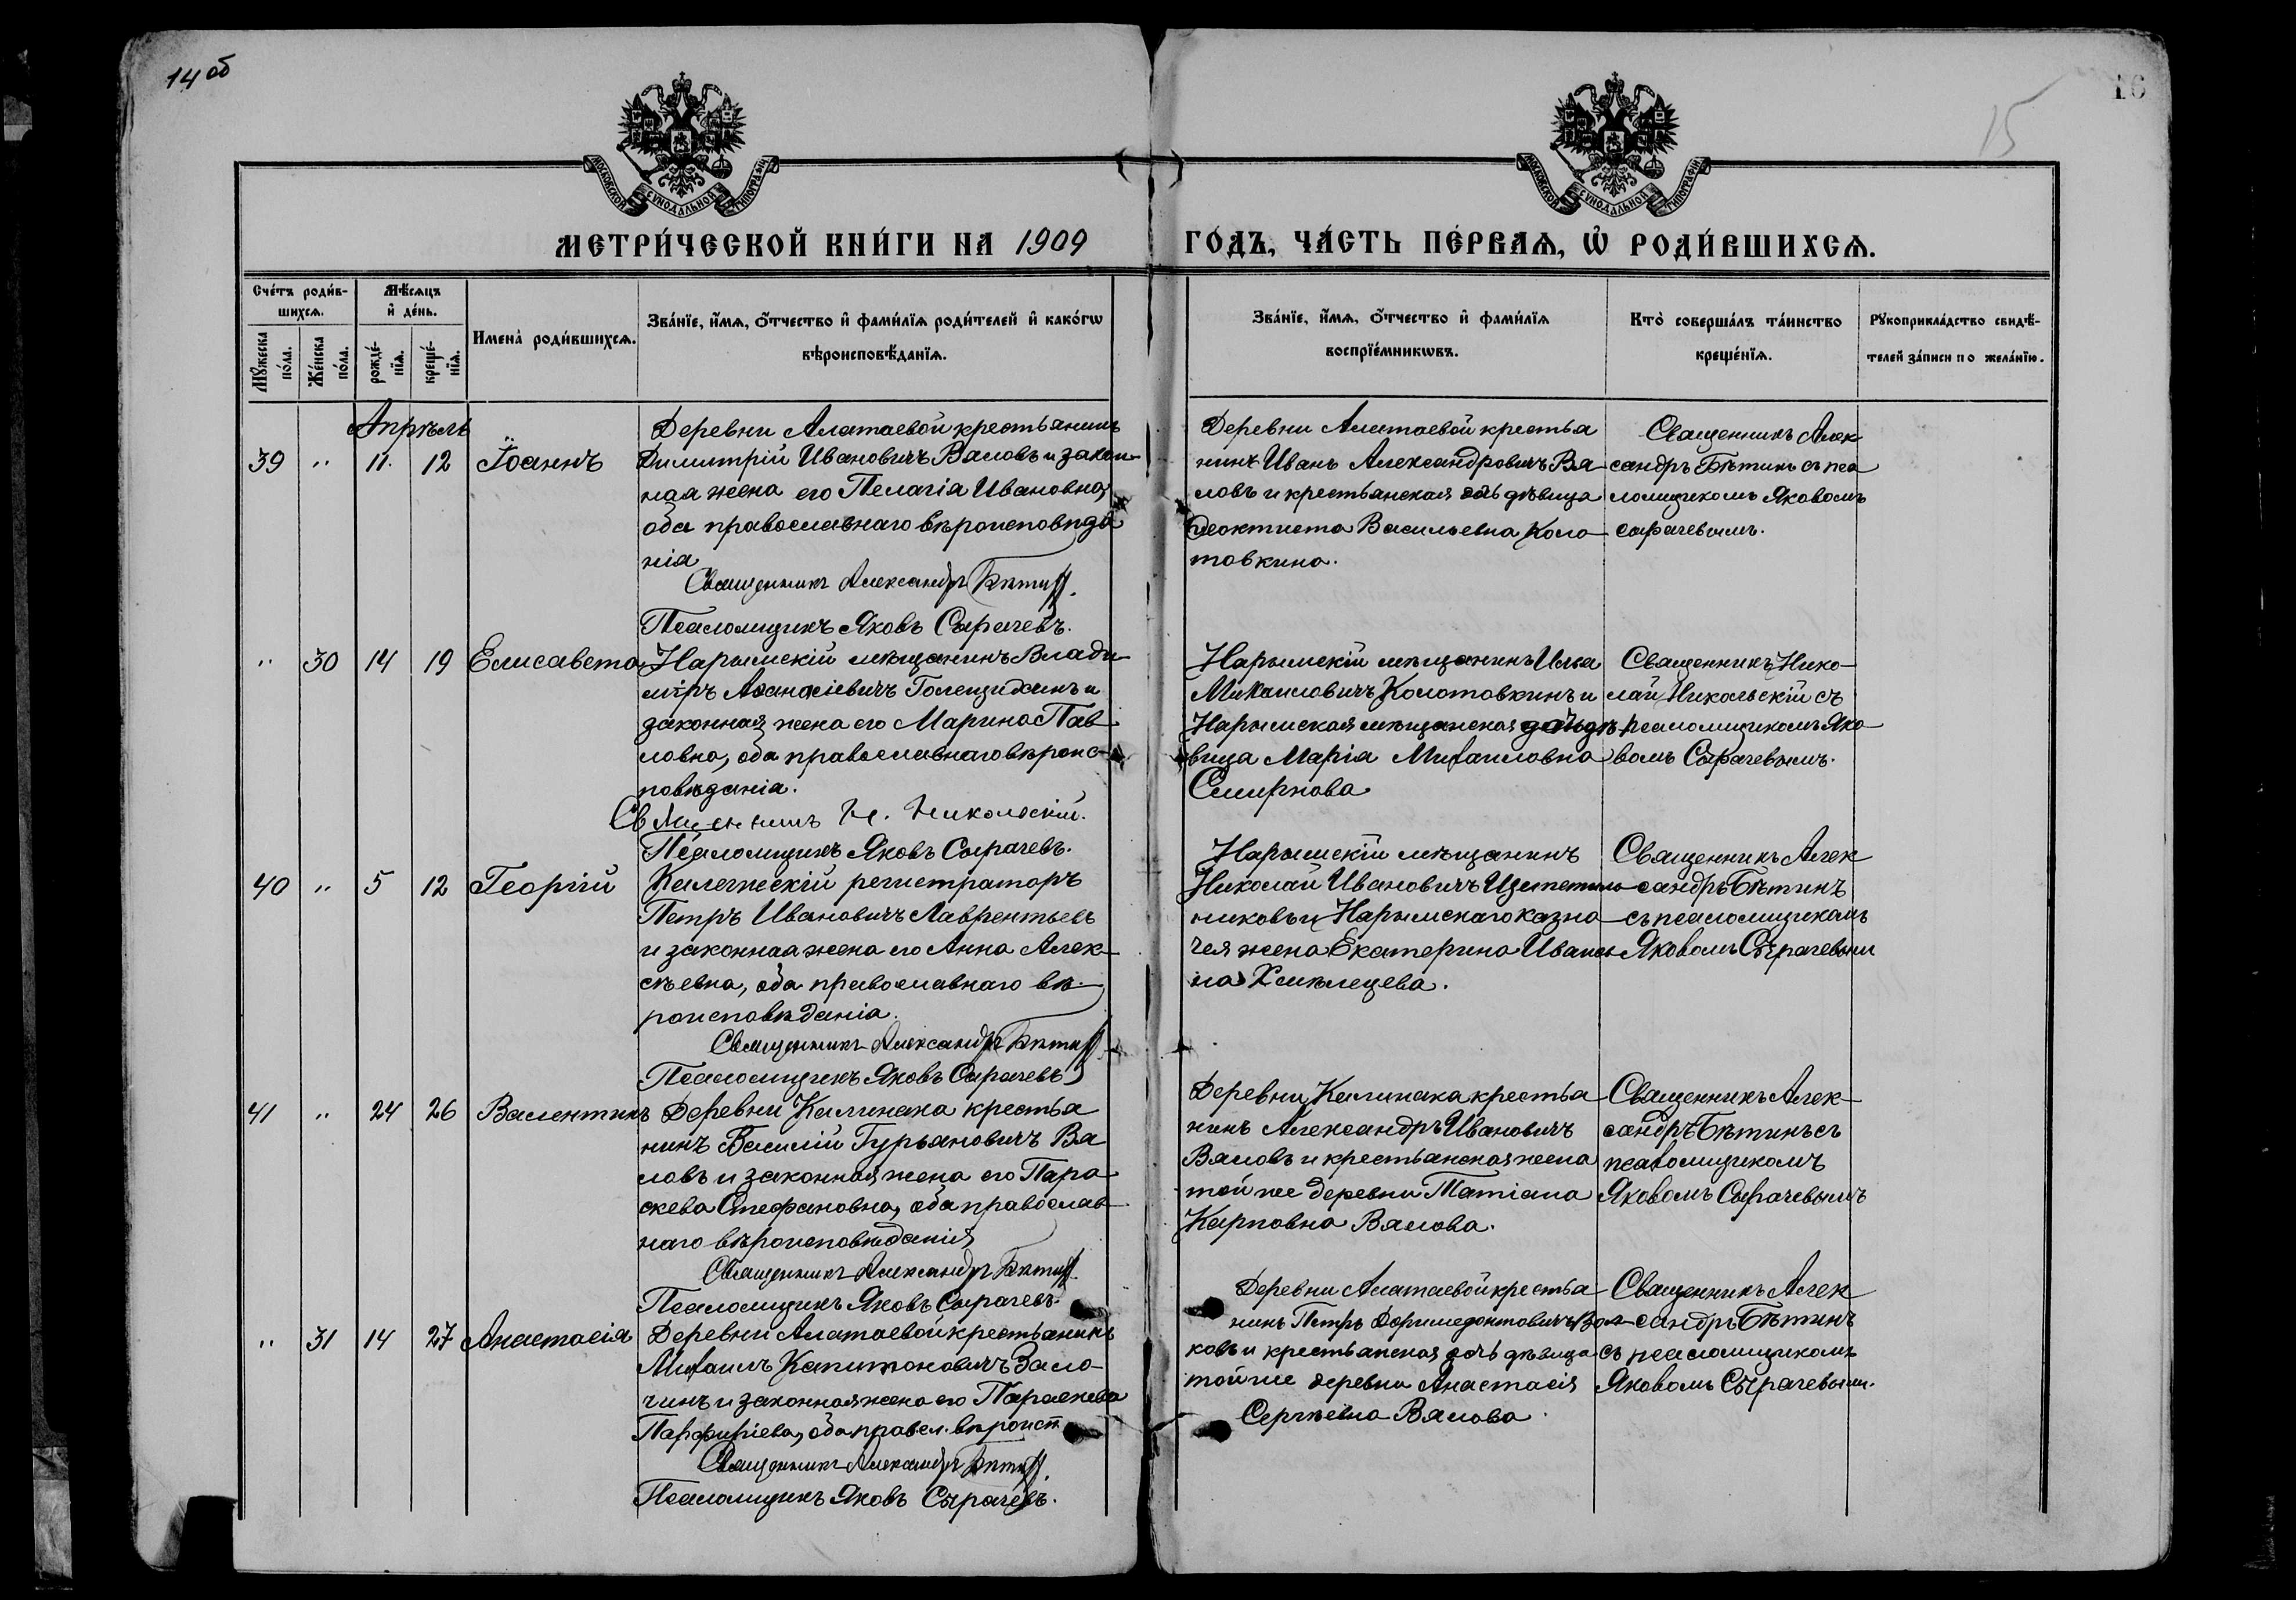 14 об
16
15
МОСКОВСКОЙ СѴНОДАЛЬНОЙ ТИПОГРАФІИ
МОСКОВСКОЙ СѴНОДАЛЬНОЙ ТИПОГРАФІИ
МЕТРИ́ЧЕСКОЙ КНИ́ГИ НА 1909
ГО́ДЪ, ЧА́СТЬ ПЕ́РВАѦ, Ѡ҆ РОДИ́ВШИХСѦ.
Сче́тъ роди́в-
шихсѧ.
Мѣ́сѧцъ
и҆ де́нь.
Мꙋ́жеска
по́ла.
Же́нска
по́ла.
рожде́-
нїѧ.
креще́-
нїѧ.
Имена̀ роди́вшихсѧ.
Зва́нїе, и҆́мѧ, ѻ҆́тчество и҆ фами́лїѧ роди́телей и҆ како́гѡ
вѣроисповѣ́данїѧ.
Зва́нїе, и҆́мѧ, ѻ҆́тчество и҆ фами́лїѧ
воспрїе́мникѡвъ.
Кто̀ соверша́лъ та́инство
креще́нїѧ.
Рꙋкоприкла́дство свидѣ́-
телей за́писи по жела́нїю.
Апрѣль
39 " 11. 12 Іоаннъ
Деревни Алатаевой крестьянинъ
Димитрій Ивановичъ Вяловъ и закон-
ная жена его Пелагія Ивановна,
оба православнаго вѣроисповѣда
нія
Священникъ Александръ Бѣтинъ.
Псаломщикъ Яковъ Сырачевъ.
Деревни Алатаевой крестья
нинъ Иванъ Александровичъ Вя-
ловъ и крестьянская дочь дѣвица
Ѳеоктиста Васильевна Коло-
товкина.
Священникъ Алек
сандръ Бѣтинъ съ пса
ломщикомъ Яковомъ
Сырачевымъ.
" 30 14 19 Елисавета
Нарымскій мѣщанинъ Влади
міръ Аѳанасіевичъ Голещихинъ и
законная жена его Марина Пав
ловна, оба православнаго вѣроис-
повѣданія.
Священникъ Н. Никольскій.
Псаломщикъ Яковъ Сырачевъ.
Нарымскій мѣщанинъ Илья
Михаиловичъ Колотовкинъ и
Нарымская мѣщанская дочь дѣ-
вица Марія Михаиловна
Смирнова
Священникъ Нико-
лай Никольскій съ
псаломщикомъ Яко-
вомъ Сырачевымъ.
40 " 5 12 Георгій
Коллежскій регистраторъ
Петръ Ивановичъ Лаврентьевъ
и законная жена его Анна Алек-
сѣевна, оба православнаго вѣ-
роисповѣданія.
Священникъ Александръ Бѣтинъ
Псаломщикъ Яковъ Сырачевъ
Нарымскій мѣщанинъ
Николай Ивановичъ
никовъ и Нарымскаго казна-
чея жена Екатерина Иванов-
на Хмѣлецева.
Священникъ Алек
сандръ Бѣтинъ
съ псаломщикомъ
Яковомъ Сырачевымъ
41 " 24 26 Валентинъ
Деревни Калинака крестья
нинъ Василій Гурьановичъ Вя
ловъ и законная жена его Пара
скева Стефановна, оба православ-
наго вѣроисповѣданія
Священникъ Александръ Бѣтинъ
Псаломщикъ Яковъ Сырачевъ.
Деревни Калинака крестья-
нинъ Александръ Ивановичъ
Вяловъ и крестьянская жена
той же деревни Татіана
Карповна Вялова.
Священникъ Алек-
сандръ Бѣтинъ съ
псаломщикомъ
Яковомъ Сырачевымъ
" 31 14 27 Анастасія
Деревни Алатаевой крестьянинъ
Михаилъ Капитоновичъ Засо-
чинъ и законная жена его Параскева
Парфиріева, оба правосл. вѣроисп.
Священникъ Александръ Бѣтинъ.
Псаломщикъ Яковъ Сырачевъ.
Деревни Алатаевой крестья-
нинъ Петръ
ковъ и крестьянская дочь дѣвица
той же деревни Анастасія
Сергѣевна Вялова.
Священникъ Алек
сандръ Бѣтинъ
съ псаломщикомъ
Яковомъ Сырачевымъ.